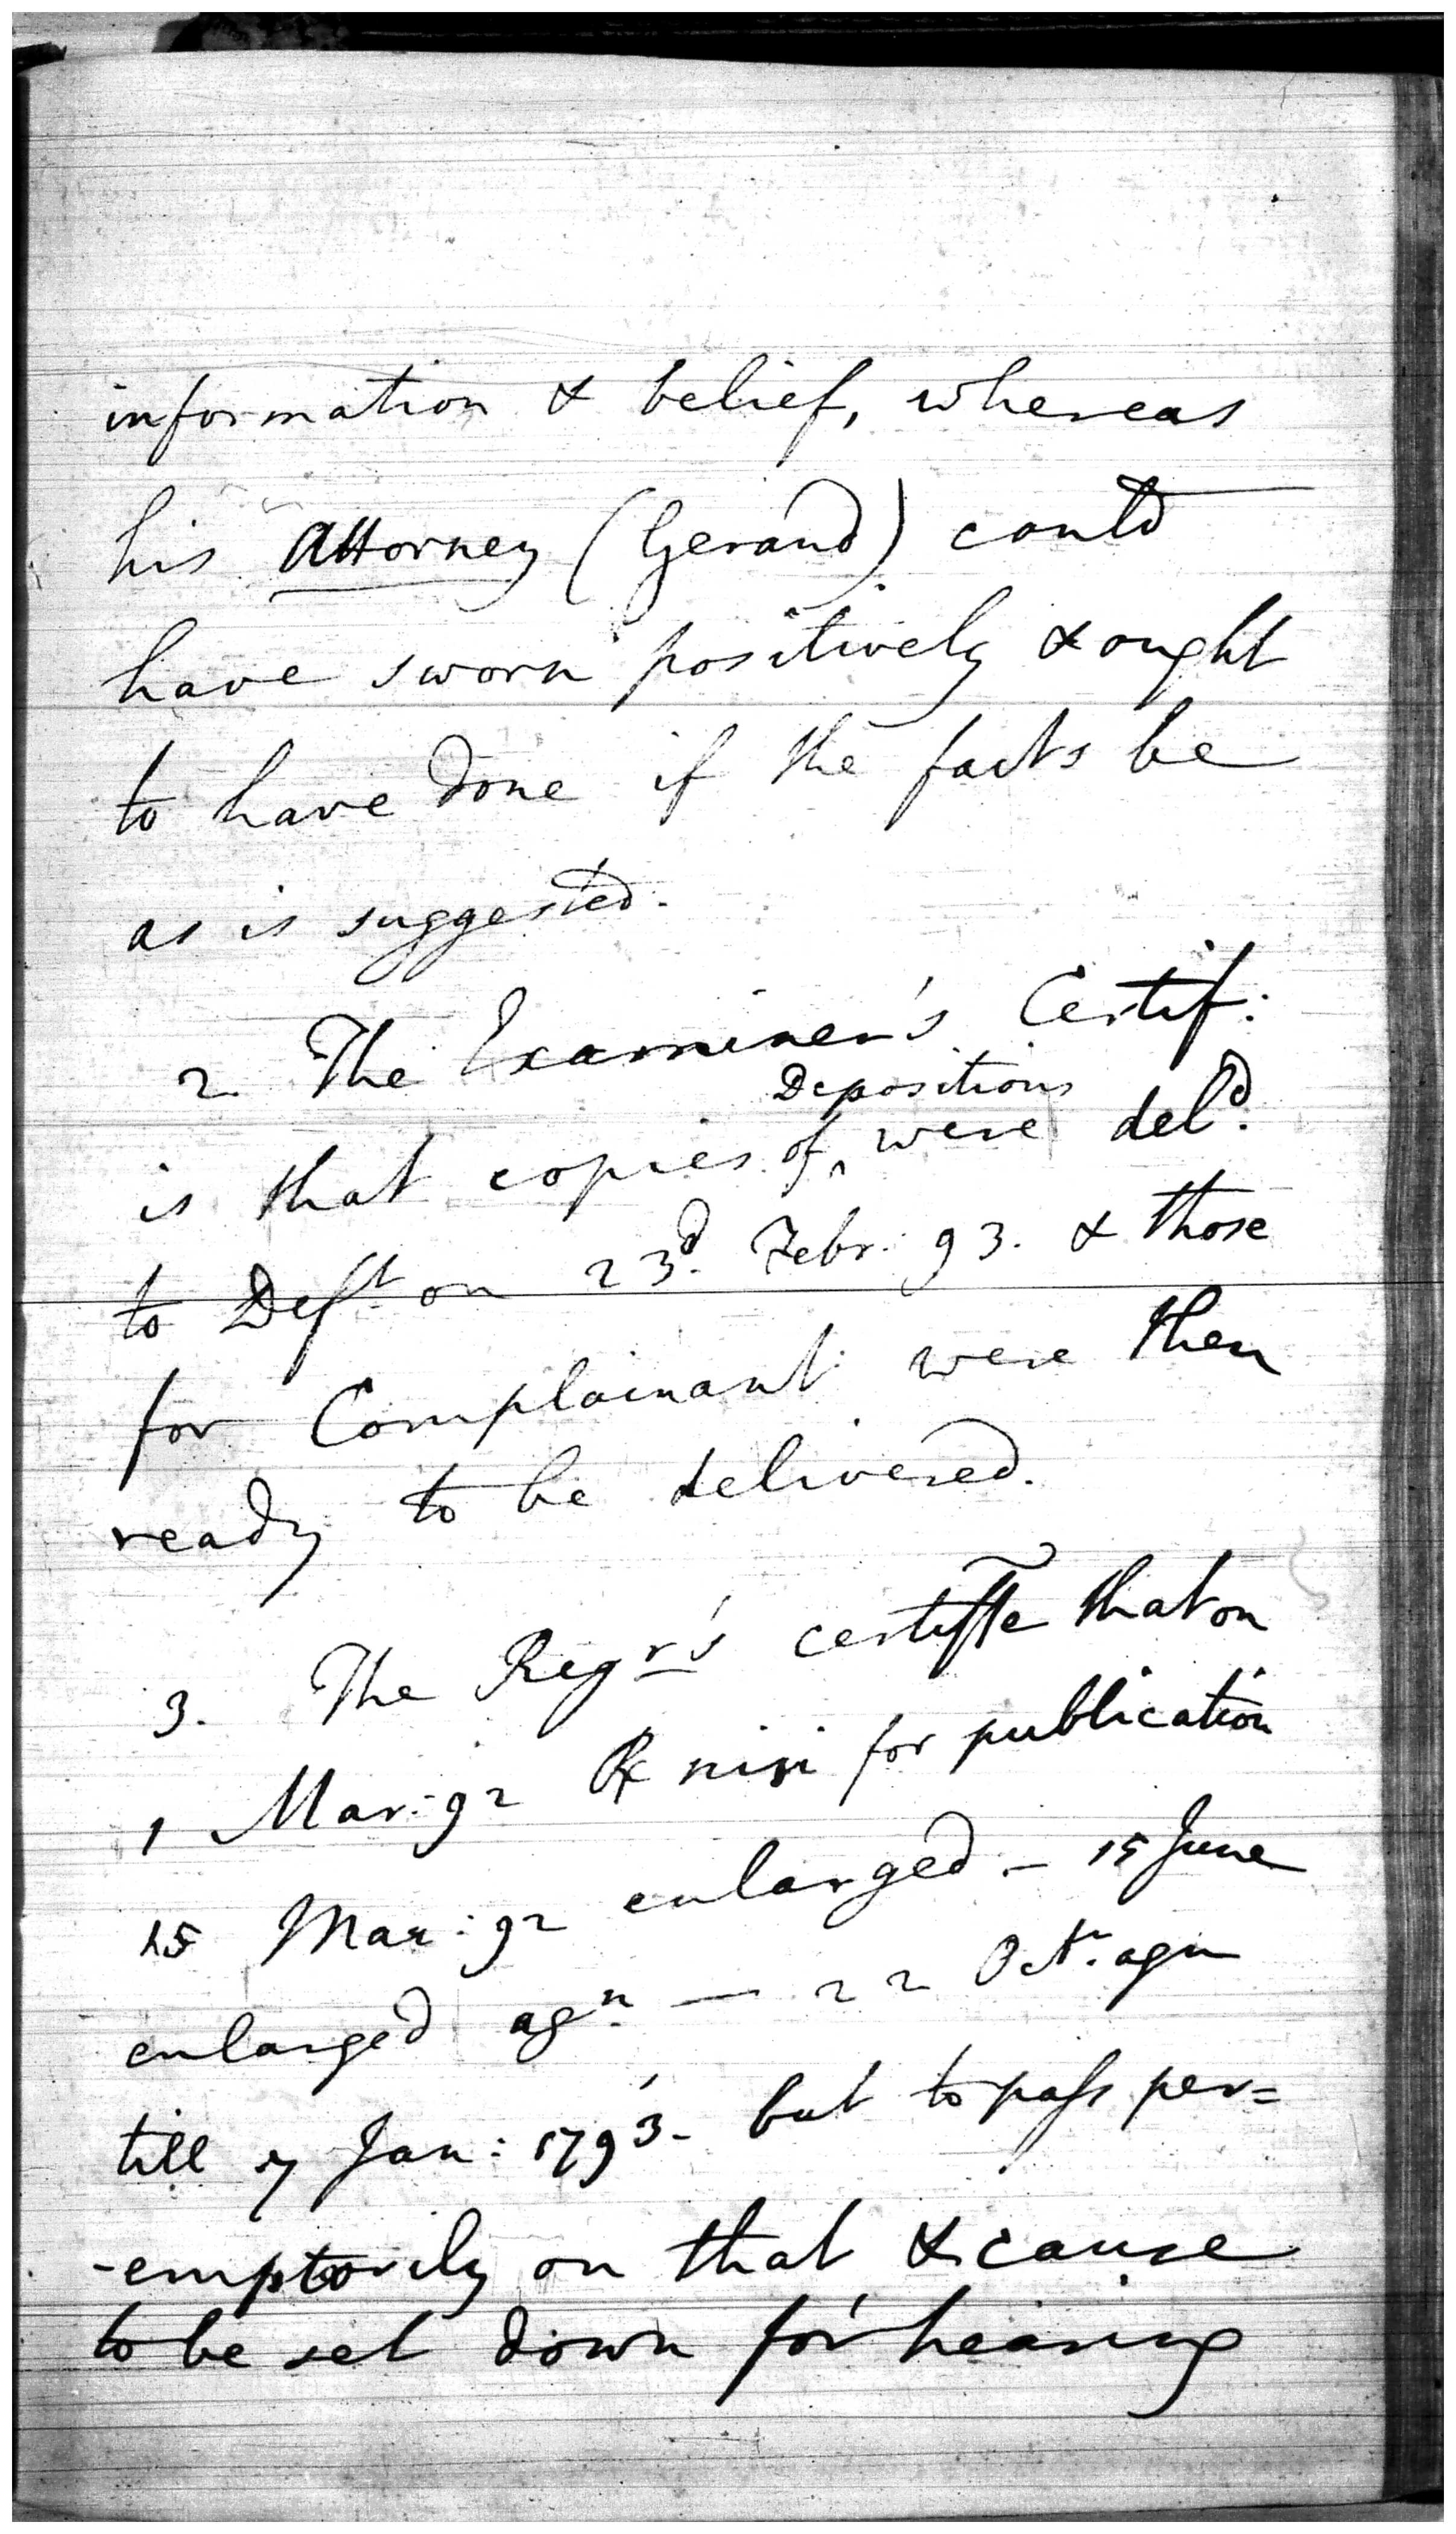 information & belief, whereas
his Attorney (Gerand) could
have sworn positively & ought
to have done if the facts be
as is suggested.
2. The Examiner's Certif:
Depositions
is that copies of ^ were deld.
to Deft on 23d. Febr: 93. & those
for Complainant were then
ready to be delivered.
3. The Regr's certiffe that on
1 Mar: 92 nisi for publication
15 Mar: 92 enlarged - 15 June
enlarged agn. — 22 Octr. agn
till 7 Jan: 1793 - but to pass per=
-emptorily on that & cause
to be set down for hearing